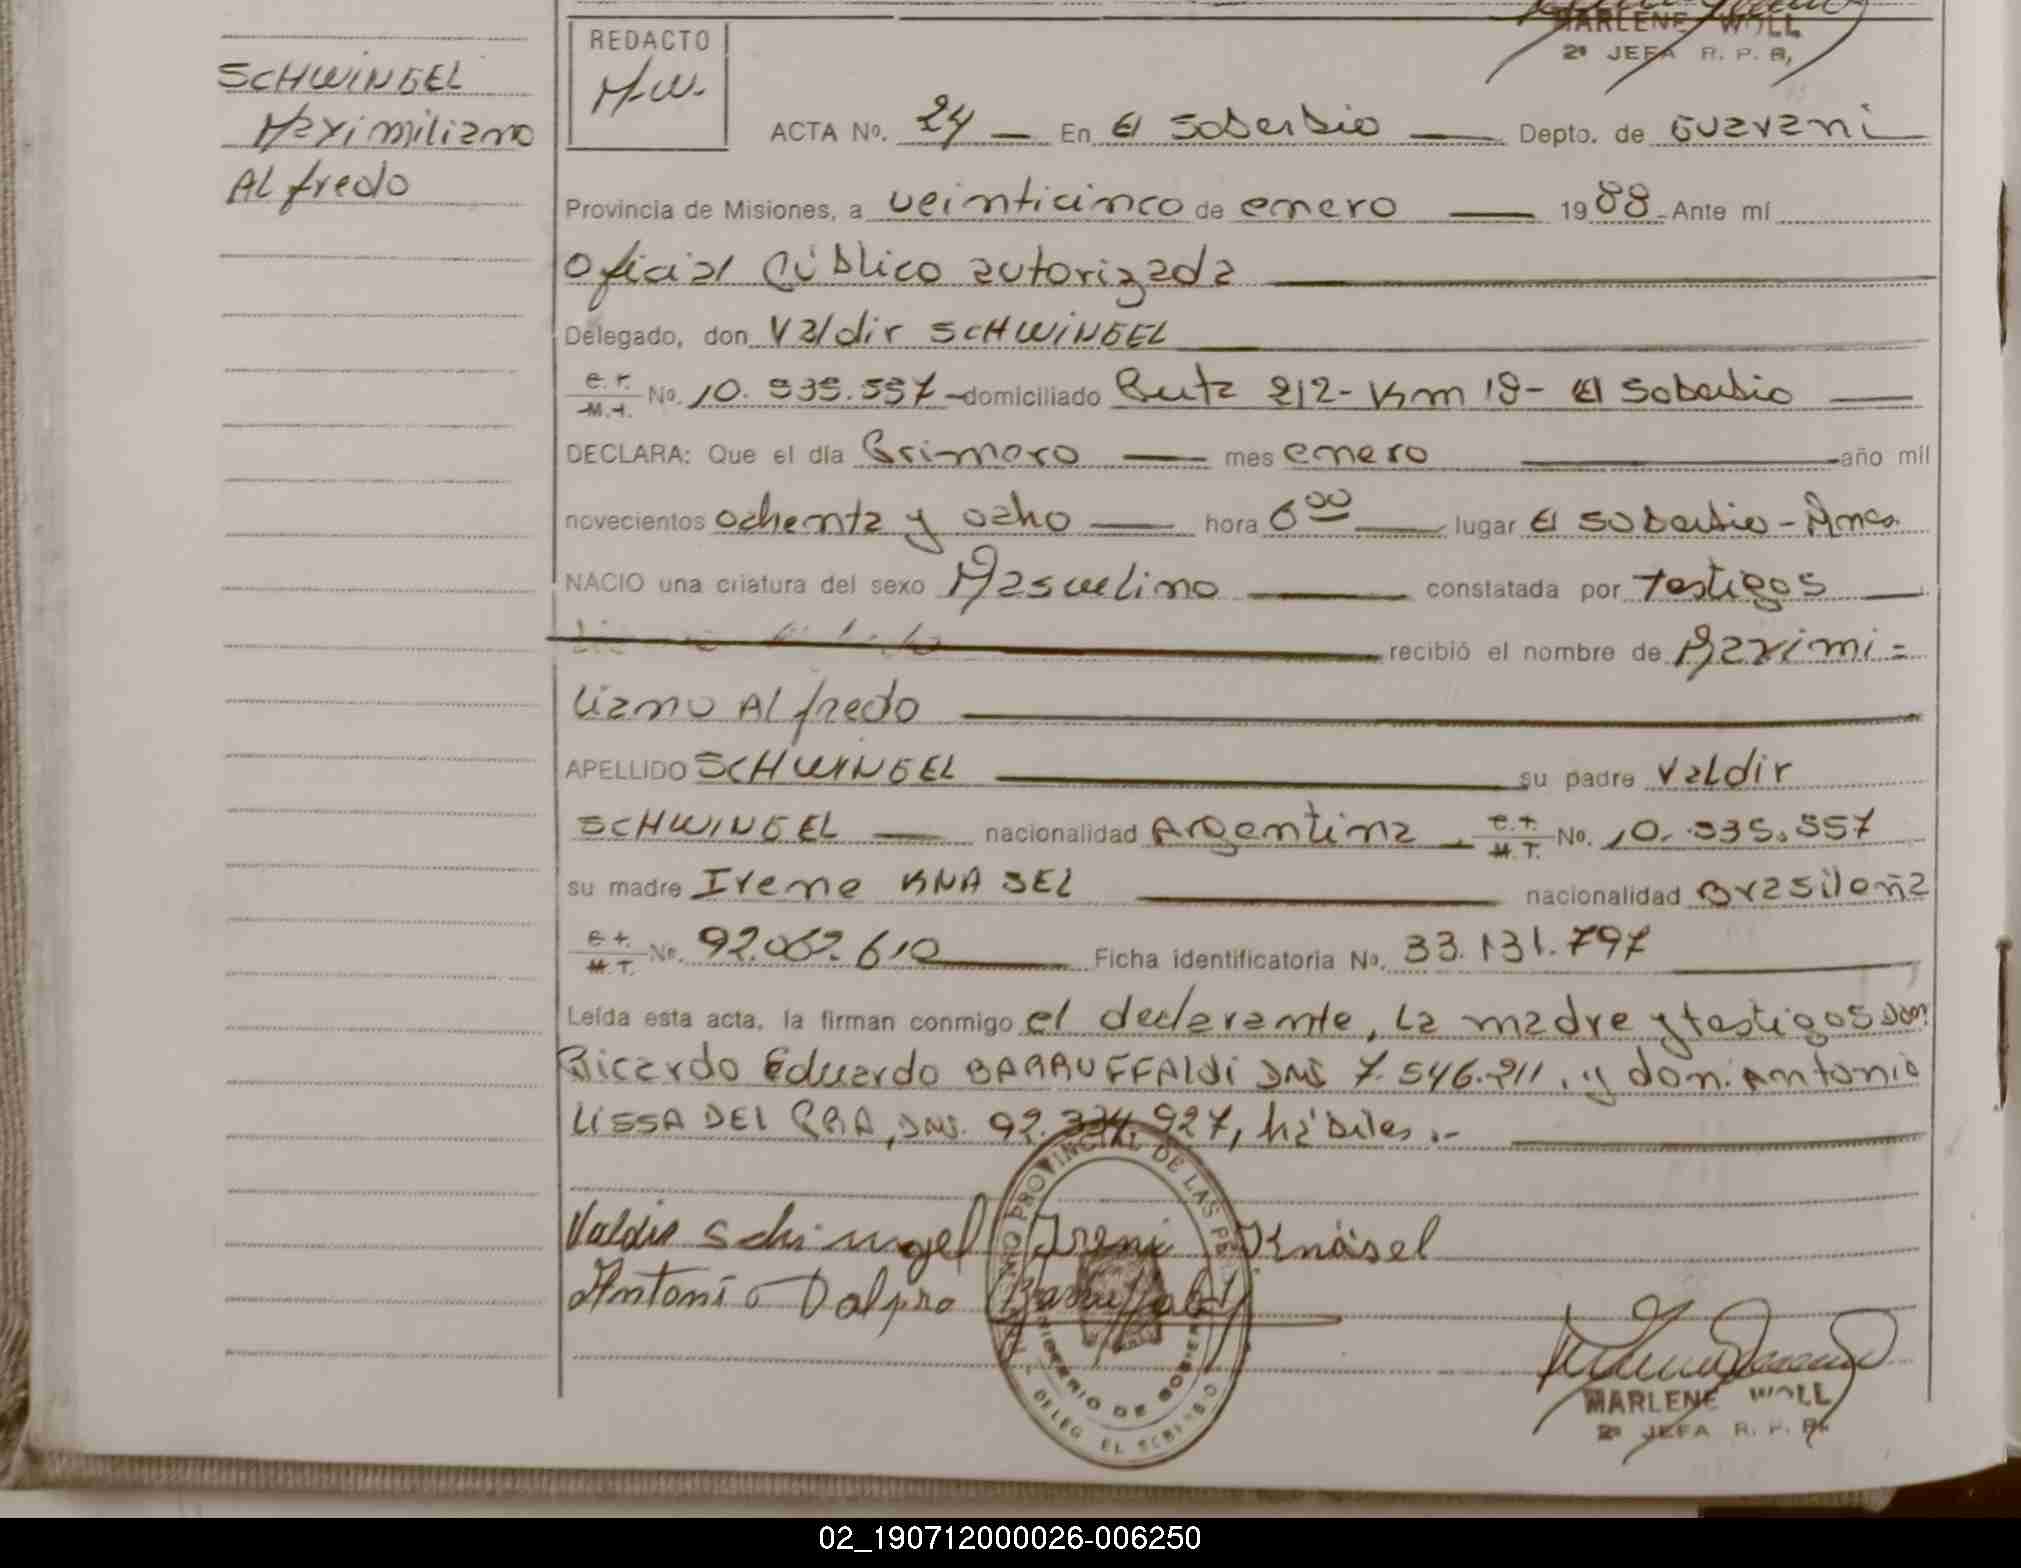 MARLENE WOLL
2ª JEFA R. P. B,
SCHWINGEL
Maximiliano
Alfredo
REDACTO
M.W.
ACTA Nº. 24 — En El Soberbio — Depto. de Guarani
Provincia de Misiones, a veinticinco de enero — 19 88 - Ante mí
Oficial Público autorizada
Delegado, don Valdir SCHWINGEL
No. 10. 935.557 - domiciliado Ruta 212 - Km 18 - El Soberbio —
DECLARA: Que el día Primero — mes enero — año mil
novecientos ochenta y ocho — hora 6 00 — lugar El Soberbio -
NACIO una criatura del sexo Masculino — constatada por testigos —
recibió el nombre de Maximi =
liano Alfredo
APELLIDO SCHWINGEL — su padre Valdir
SCHWINGEL — nacionalidad Argentina - No. 10. 935.557
su madre Irene KNASEL — nacionalidad Brasileña
No. 92.062.610 — Ficha identificatoria No. 33.131.797
Leída esta acta, la firman conmigo el declarante, la madre y testigos don
Ricardo Eduardo BARRUFFALdi DNI 7.546.211, y don Antonio
LISSA DEL PRA, DNI. 92.334.927, hábiles.-
Valdir Schwingel Ireni Knäsel
Antonio Dalpra Barruffaldi
PROVINCIAL DE LAS PE
MINISTERIO DE GOBIER
DELEG EL SOBERBIO
MARLENE WOLL
2ª JEFA R. P. B.
02_190712000026-006250